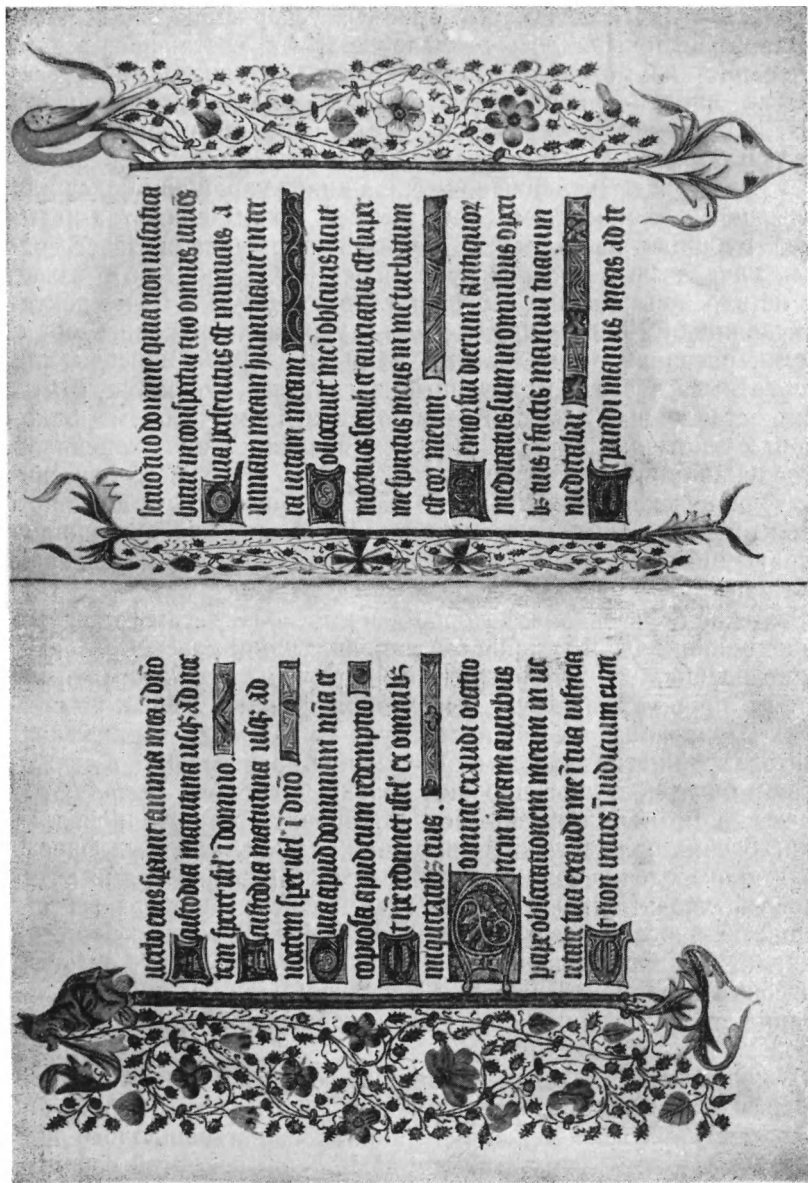 uerbo eius sperauit anima mea ī dño
A custodia matutina usqꝫ ad noc
tem speret isrl' ī domino.
A custodia matutina usqꝫ ad
noctem speret isrl' ī dño
Quia apud dominum mīa et
copiosa apud eum redemptio
Et ipē redimet isrl' ex omnibꝫ
iniquitatibꝫ eius.
Domine exaudi oratio
nem meam auribus
ꝑcipe obsecrationem meam in ue
ritate tua exaudi me ī tua iusticia
Et non intres ī iudicium cum
seruo tuo domine quia non iustifica
bitur in conspectu tuo omnis uiuēs
Quia persecutus est inimicus a
nimam meam humiliauit in ter
ra uitam meam
Collocauit me ī obscuris sicut
mortuos seculi et anxiatus est super
me spiritus meus in me turbatum
est cor meum
Memor fui dierum antiquoꝝ
meditatus sum in omnibus operi
bꝫ tuis ī factis manuū tuarum
meditabar
Expandi manus meas ad te